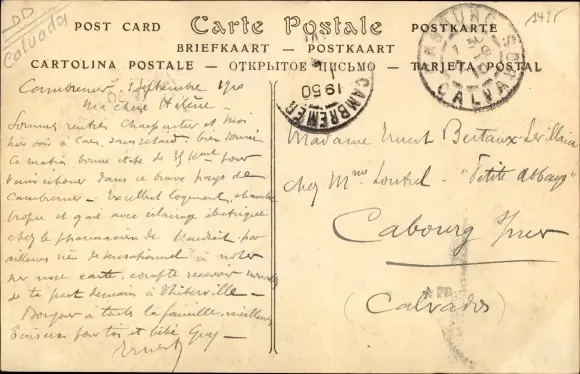 DD
Calvados
1425
POST CARD Carte Postale POSTKARTE
BRIEFKAART — POSTKAART
CARTOLINA POSTALE — ОТКРЫТОЕ ПИСЬМО — TARJETA POSTAL
CALVADOS
CAMBREMER
1950
Cambremer, Septembre 1910
Ma chère Hélène -
Sommes rentrés Charpentier et moi
hier soir à Caen, sans retard - bien dormi
Ce matin bonne étape de pour
dans ce brave pays de
Cambremer - Excellent logement, chambre
propre et gaie avec éclairage électrique
chez le pharmacien de l'endroit, par
ailleurs rien de sensationnel à noter
sur ma carte, compte recevoir nouvelles
de ta part demain à Thiberville -
Bonjour à toute la famille, meilleurs
baisers pour toi et bébé Guy -
Ernest
Madame Ernest Bertaux-Levillain
chez Mme "Petite Abbaye"
Cabourg s/mer
(Calvados)